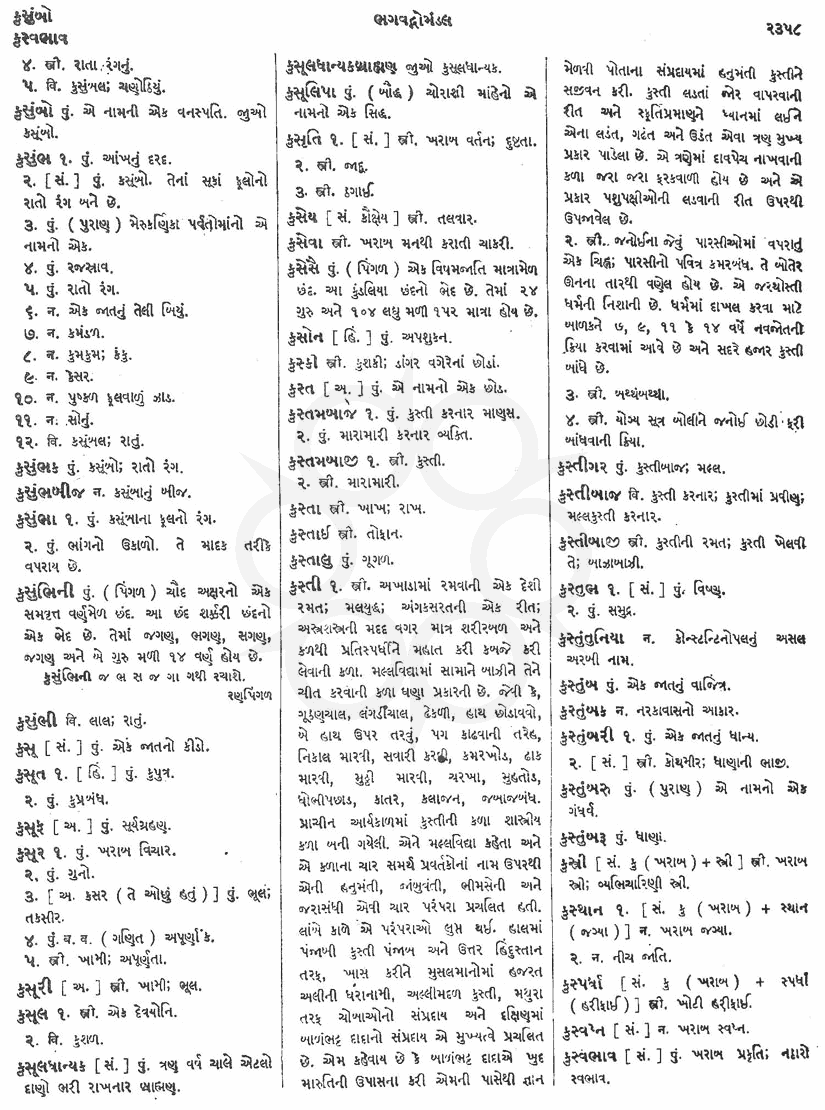 કુસુંબો
કુસ્વભાવ
ભગવદ્ગોમંડલ
૨૩૫૮
૪. સ્ત્રી. રાતા રંગનું.
૫. વિ. કસુંબલ; ચણોઠિયું.
કુસુંબો પું. એ નામની એક વનસ્પતિ. જુઓ
કસુંબો.
કુસુંભ ૧. પું. આંખનું દરદ.
૨. [ સં. ] પું. કસુંબો. તેનાં સૂકાં ફૂલોનો
રાતો રંગ બને છે.
૩. પું. ( પુરાણ ) મેરુકર્ણિકા પર્વતોમાંનો એ
નામનો એક.
૪. પું. રજસ્રાવ.
૫. પું. રાતો રંગ.
૬. ન. એક જાતનું તેલી બિયું.
૭. ન. કમંડળ.
૮. ન. કુમકુમ; કંકુ.
૯. ન. કેસર.
૧૦. ન. પુષ્કળ ફૂલવાળું ઝાડ.
૧૧. ન. સોનું.
૧૨. વિ. કસુંબલ; રાતું.
કુસુંભક પું. કસુંબો; રાતો રંગ.
કુસુંભબીજ ન. કસુંબાનું બીજ.
કુસુંભા ૧. પું. કસુંબાના ફૂલનો રંગ.
૨. પું. ભાંગનો ઉકાળો. તે માદક તરીકે
વપરાય છે.
કુસુંભિની પું. ( પિંગળ ) ચૌદ અક્ષરનો એક
સમવૃત્ત વર્ણમેળ છંદ. આ છંદ શર્ક્કરી છંદનો
એક ભેદ છે. તેમાં જગણ, ભગણ, સગણ,
જગણ અને બે ગુરુ મળી ૧૪ વર્ણ હોય છે.
કુસુંભિની જ ભ સ જ ગા ગથી રચારો.
રણપિંગળ
કુસુંભી વિ. લાલ; રાતું.
કુસૂ [ સં. ] પું. એક જાતનો કીડો.
કુસૂત ૧. [ હિં. ] પું. કુપુત્ર.
૨. પું. કુપ્રબંધ.
કુસૂફ [ અ. ] પું. સૂર્યગ્રહણ.
કુસૂર ૧. પું. ખરાબ વિચાર.
૨. પું. ગુનો.
૩. [ અ. કસર ( તે ઓછું હતું ) ] પું. ભૂલ;
તકસીર.
૪. પું. બ. વ. ( ગણિત ) અપૂર્ણાંક.
૫. સ્ત્રી. ખામી; અપૂર્ણતા.
કુસૂરી [ અ. ] સ્ત્રી. ખામી; ભૂલ.
કુસૂલ ૧. સ્ત્રી. એક દેવયોનિ.
૨. વિ. કુશળ.
કુસૂલધાન્યક [ સં. ] પું. ત્રણ વર્ષ ચાલે એટલો
દાણો ભરી રાખનાર બ્રાહ્મણ.
કુસૂલધાન્યકબ્રાહ્મણ જુઓ કુસૂલધાન્યક.
કુસૂલિપા પું. ( બૌદ્ધ ) ચોરાશી માંહેનો એ
નામનો એક સિદ્ધ.
કુસૃતિ ૧. [ સં. ] સ્ત્રી. ખરાબ વર્તન; દુષ્ટતા.
૨. સ્ત્રી. જાદૂ.
૩. સ્ત્રી. ઠગાઈ.
કુસેય [ સં. કૌક્ષેય ] સ્ત્રી. તલવાર.
કુસેવા સ્ત્રી. ખરાબ મનથી કરાતી ચાકરી.
કુસેસૈ પું. ( પિંગળ ) એક વિષમજાતિ માત્રામેળ
છંદ. આ કુંડલિયા છંદનો ભેદ છે. તેમાં ૨૪
ગુરુ અને ૧૦૪ લઘુ મળી ૧૫૨ માત્રા હોય છે.
કુસોન [ હિં. ] પું. અપશુકન.
કુસ્કી સ્ત્રી. કુશકી; ડાંગર વગેરેનાં છોડાં.
કુસ્ત [ અ. ] પું. એ નામનો એક છોડ.
કુસ્તમબાજ ૧. પું. કુસ્તી કરનાર માણસ.
૨. પું. મારામારી કરનાર વ્યક્તિ.
કુસ્તમબાજી ૧. સ્ત્રી. કુસ્તી.
૨. સ્ત્રી. મારામારી.
કુસ્તા સ્ત્રી. ખાખ; રાખ.
કુસ્તાઈ સ્ત્રી. તોફાન.
કુસ્તાલુ પું. ગૂગળ.
કુસ્તી ૧. સ્ત્રી. અખાડામાં રમવાની એક દેશી
રમત; મલયુદ્ધ; અંગકસરતની એક રીત;
અસ્ત્રશસ્ત્રની મદદ વગર માત્ર શરીરબળ અને
કળથી પ્રતિસ્પર્ધીને મહાત કરી કબજે કરી
લેવાની કળા. મલ્લવિદ્યામાં સામાને બાઝીને તેને
ચીત કરવાની કળા ઘણા પ્રકારની છે. જેવી કે,
ગૂડણચાલ, લંગડીચાલ, ઢેકળી, હાથ છોડાવવો,
બે હાથ ઉપર તરવું, પગ કાઢવાની તરેહ,
નિકાલ મારવી, સવારી કરવી, કમરખોડ, ઢાક
મારવી, મુઠ્ઠી મારવી, ચરખા, મુહતોડ,
ધોબીપછાડ, કાતર, કલાજન, જબાજબંધ.
પ્રાચીન આર્યકાળમાં કુસ્તીની કળા શાસ્ત્રીય
કળા બની ગયેલી. એને મલ્લવિદ્યા કહેતા અને
એ કળાના ચાર સમર્થ પ્રવર્તકોનાં નામ ઉપરથી
એની હનુમંતી, જાંબુવંતી, ભીમસેની અને
જરાસંધી એવી ચાર પરંપરા પ્રચલિત હતી.
લાંબે કાળે એ પરંપરાઓ લુપ્ત થઈ. હાલમાં
પંજાબી કુસ્તી પંજાબ અને ઉત્તર હિંદુસ્તાન
તરફ, ખાસ કરીને મુસલમાનોમાં હજરત
અલીની ઘરાનામી, અલ્લીમદળ કુસ્તી, મથુરા
તરફ ચોબાઓનો સંપ્રદાય અને દક્ષિણમાં
બાળંભટ્ટ દાદાનો સંપ્રદાય એ મુખ્યત્વે પ્રચલિત
છે. એમ કહેવાય છે કે બાળંભટ્ટ દાદાએ ખુદ
મારુતિની ઉપાસના કરી એમની પાસેથી જ્ઞાન
મેળવી પોતાના સંપ્રદાયમાં હનુમંતી કુસ્તીને
સજીવન કરી. કુસ્તી લડતાં જોર વાપરવાની
રીત અને સ્ફૂર્તિપ્રમાણને ધ્યાનમાં લઈને
એના લડંત, ગઢંત અને ઉડંત એવા ત્રણ મુખ્ય
પ્રકાર પાડેલા છે. એ ત્રણેમાં દાવપેચ નાખવાની
કળા જરા જરા ફરકવાળી હોય છે અને એ
પ્રકાર પશુપક્ષીઓની લડવાની રીત ઉપરથી
ઉપજાવેલ છે.
૨. સ્ત્રી. જનોઈના જેવું પારસીઓમાં વપરાતું
એક ચિહ્ન; પારસીનો પવિત્ર કમરબંધ. તે બોતેર
ઊનના તારથી વણેલ હોય છે. એ જરથોસ્તી
ધર્મની નિશાની છે. ધર્મમાં દાખલ કરવા માટે
બાળકને ૭, ૯, ૧૧ કે ૧૪ વર્ષે નવજોતની
ક્રિયા કરવામાં આવે છે અને સદરે હજાર કુસ્તી
બાંધે છે.
૩. સ્ત્રી. બથ્થંબથ્થા.
૪. સ્ત્રી. યોગ્ય સૂત્ર બોલીને જનોઈ છોડી ફરી
બાંધવાની ક્રિયા.
કુસ્તીગર પું. કુસ્તીબાજ; મલ્લ.
કુસ્તીબાજ વિ. કુસ્તી કરનાર; કુસ્તીમાં પ્રવીણ;
મલ્લકુસ્તી કરનાર.
કુસ્તીબાજી સ્ત્રી. કુસ્તીની રમત; કુસ્તી ખેલવી
તે; બાઝાબાઝી.
કુસ્તુભ ૧. [ સં. ] પું. વિષ્ણુ.
૨. પું. સમુદ્ર.
કુસ્તુંતુનિયા ન. કોન્સ્ટન્ટિનોપલનું અસલ
અરબી નામ.
કુસ્તુંબ પું. એક જાતનું વાજિંત્ર.
કુસ્તુંબક ન. નરકાવાસનો આકાર.
કુસ્તુંબરી ૧. પું. એક જાતનું ધાન્ય.
૨. [ સં. ] સ્ત્રી. કોથમીર; ધાણાની ભાજી.
કુસ્તુંબરુ પું. ( પુરાણ ) એ નામનો એક
ગંધર્વ.
કુસ્તુંબરૂ પું. ધાણા.
કુસ્ત્રી [ સં. કુ ( ખરાબ ) + સ્ત્રી ] સ્ત્રી. ખરાબ
સ્ત્રી; વ્યભિચારિણી સ્ત્રી.
કુસ્થાન ૧. [ સં. કુ ( ખરાબ ) + સ્થાન
( જગ્યા ) ] ન. ખરાબ જગ્યા.
૨. ન. નીચ જાતિ.
કુસ્પર્ધા [ સં. કુ ( ખરાબ ) + સ્પર્ધા
( હરીફાઈ ) ] સ્ત્રી. ખોટી હરીફાઈ.
કુસ્વપ્ન [ સં. ] ન. ખરાબ સ્વપ્ન.
કુસ્વભાવ [ સં. ] પું. ખરાબ પ્રકૃતિ; નઠારો
સ્વભાવ.